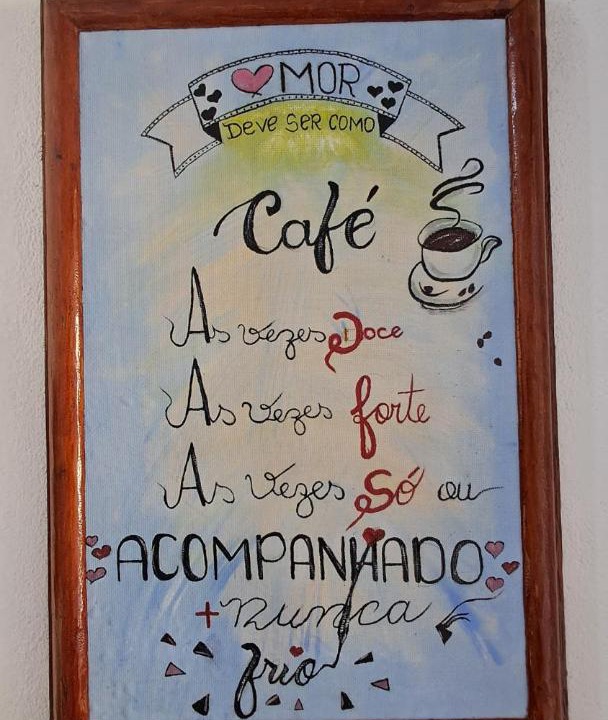 ❤MOR
DEVE SER COMO
Café
As vezes Doce
As vezes forte
As vezes Só ou
ACOMPANHADO
+ nunca
frio